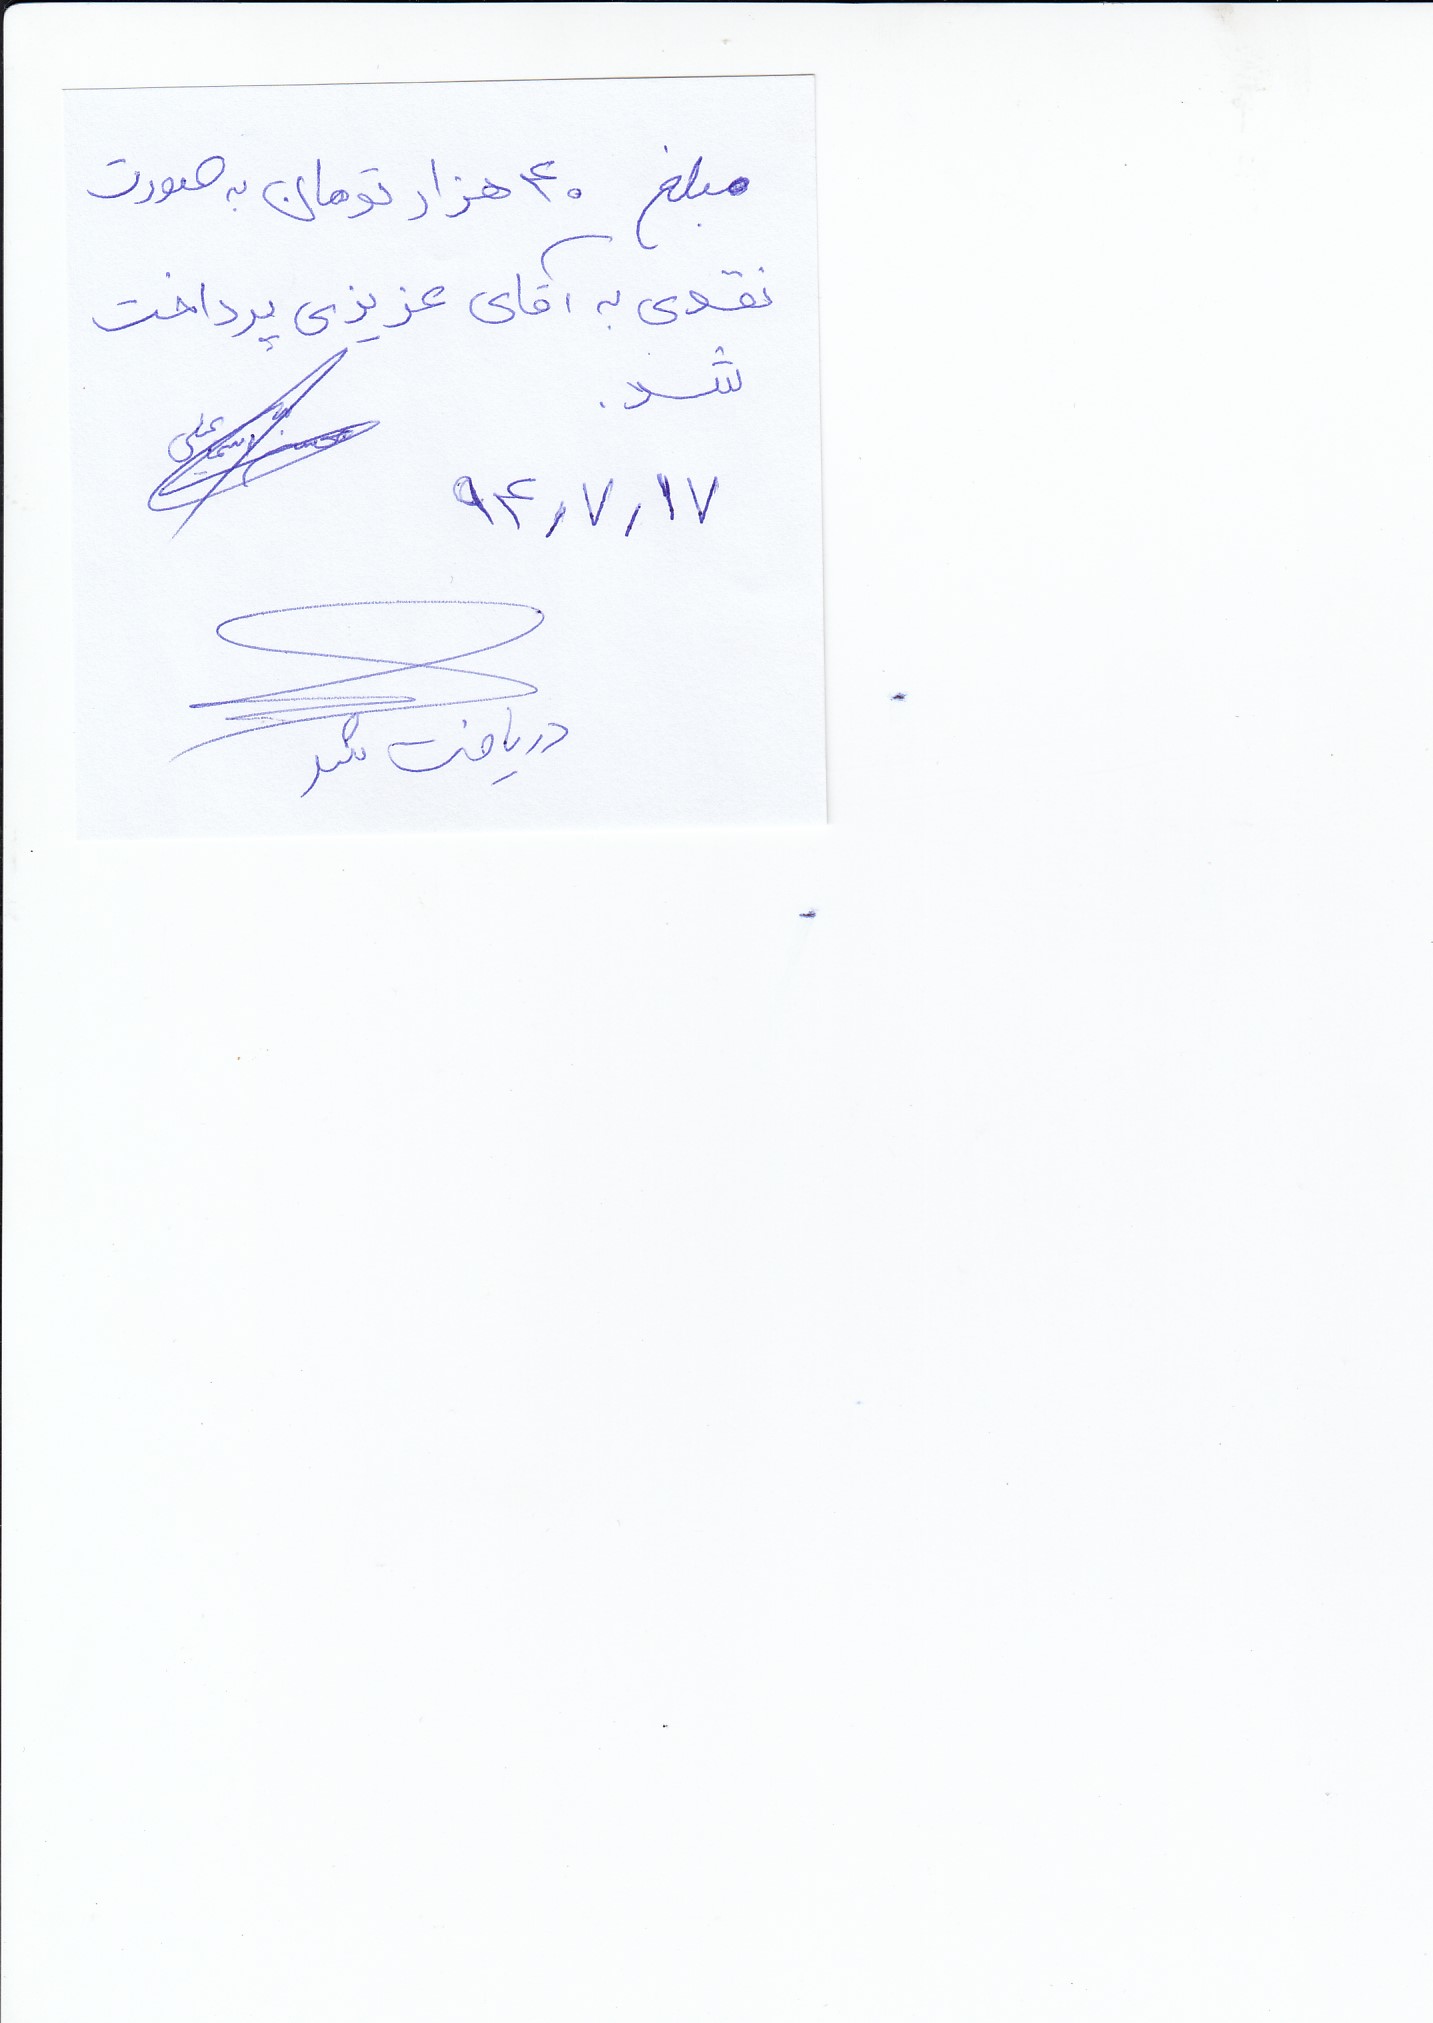 مبلغ ۴۰ هزار تومان به صورت
نقدی به آقای عزیزی پرداخت
شد.
۹۴/۷/۱۷
دریافت شد